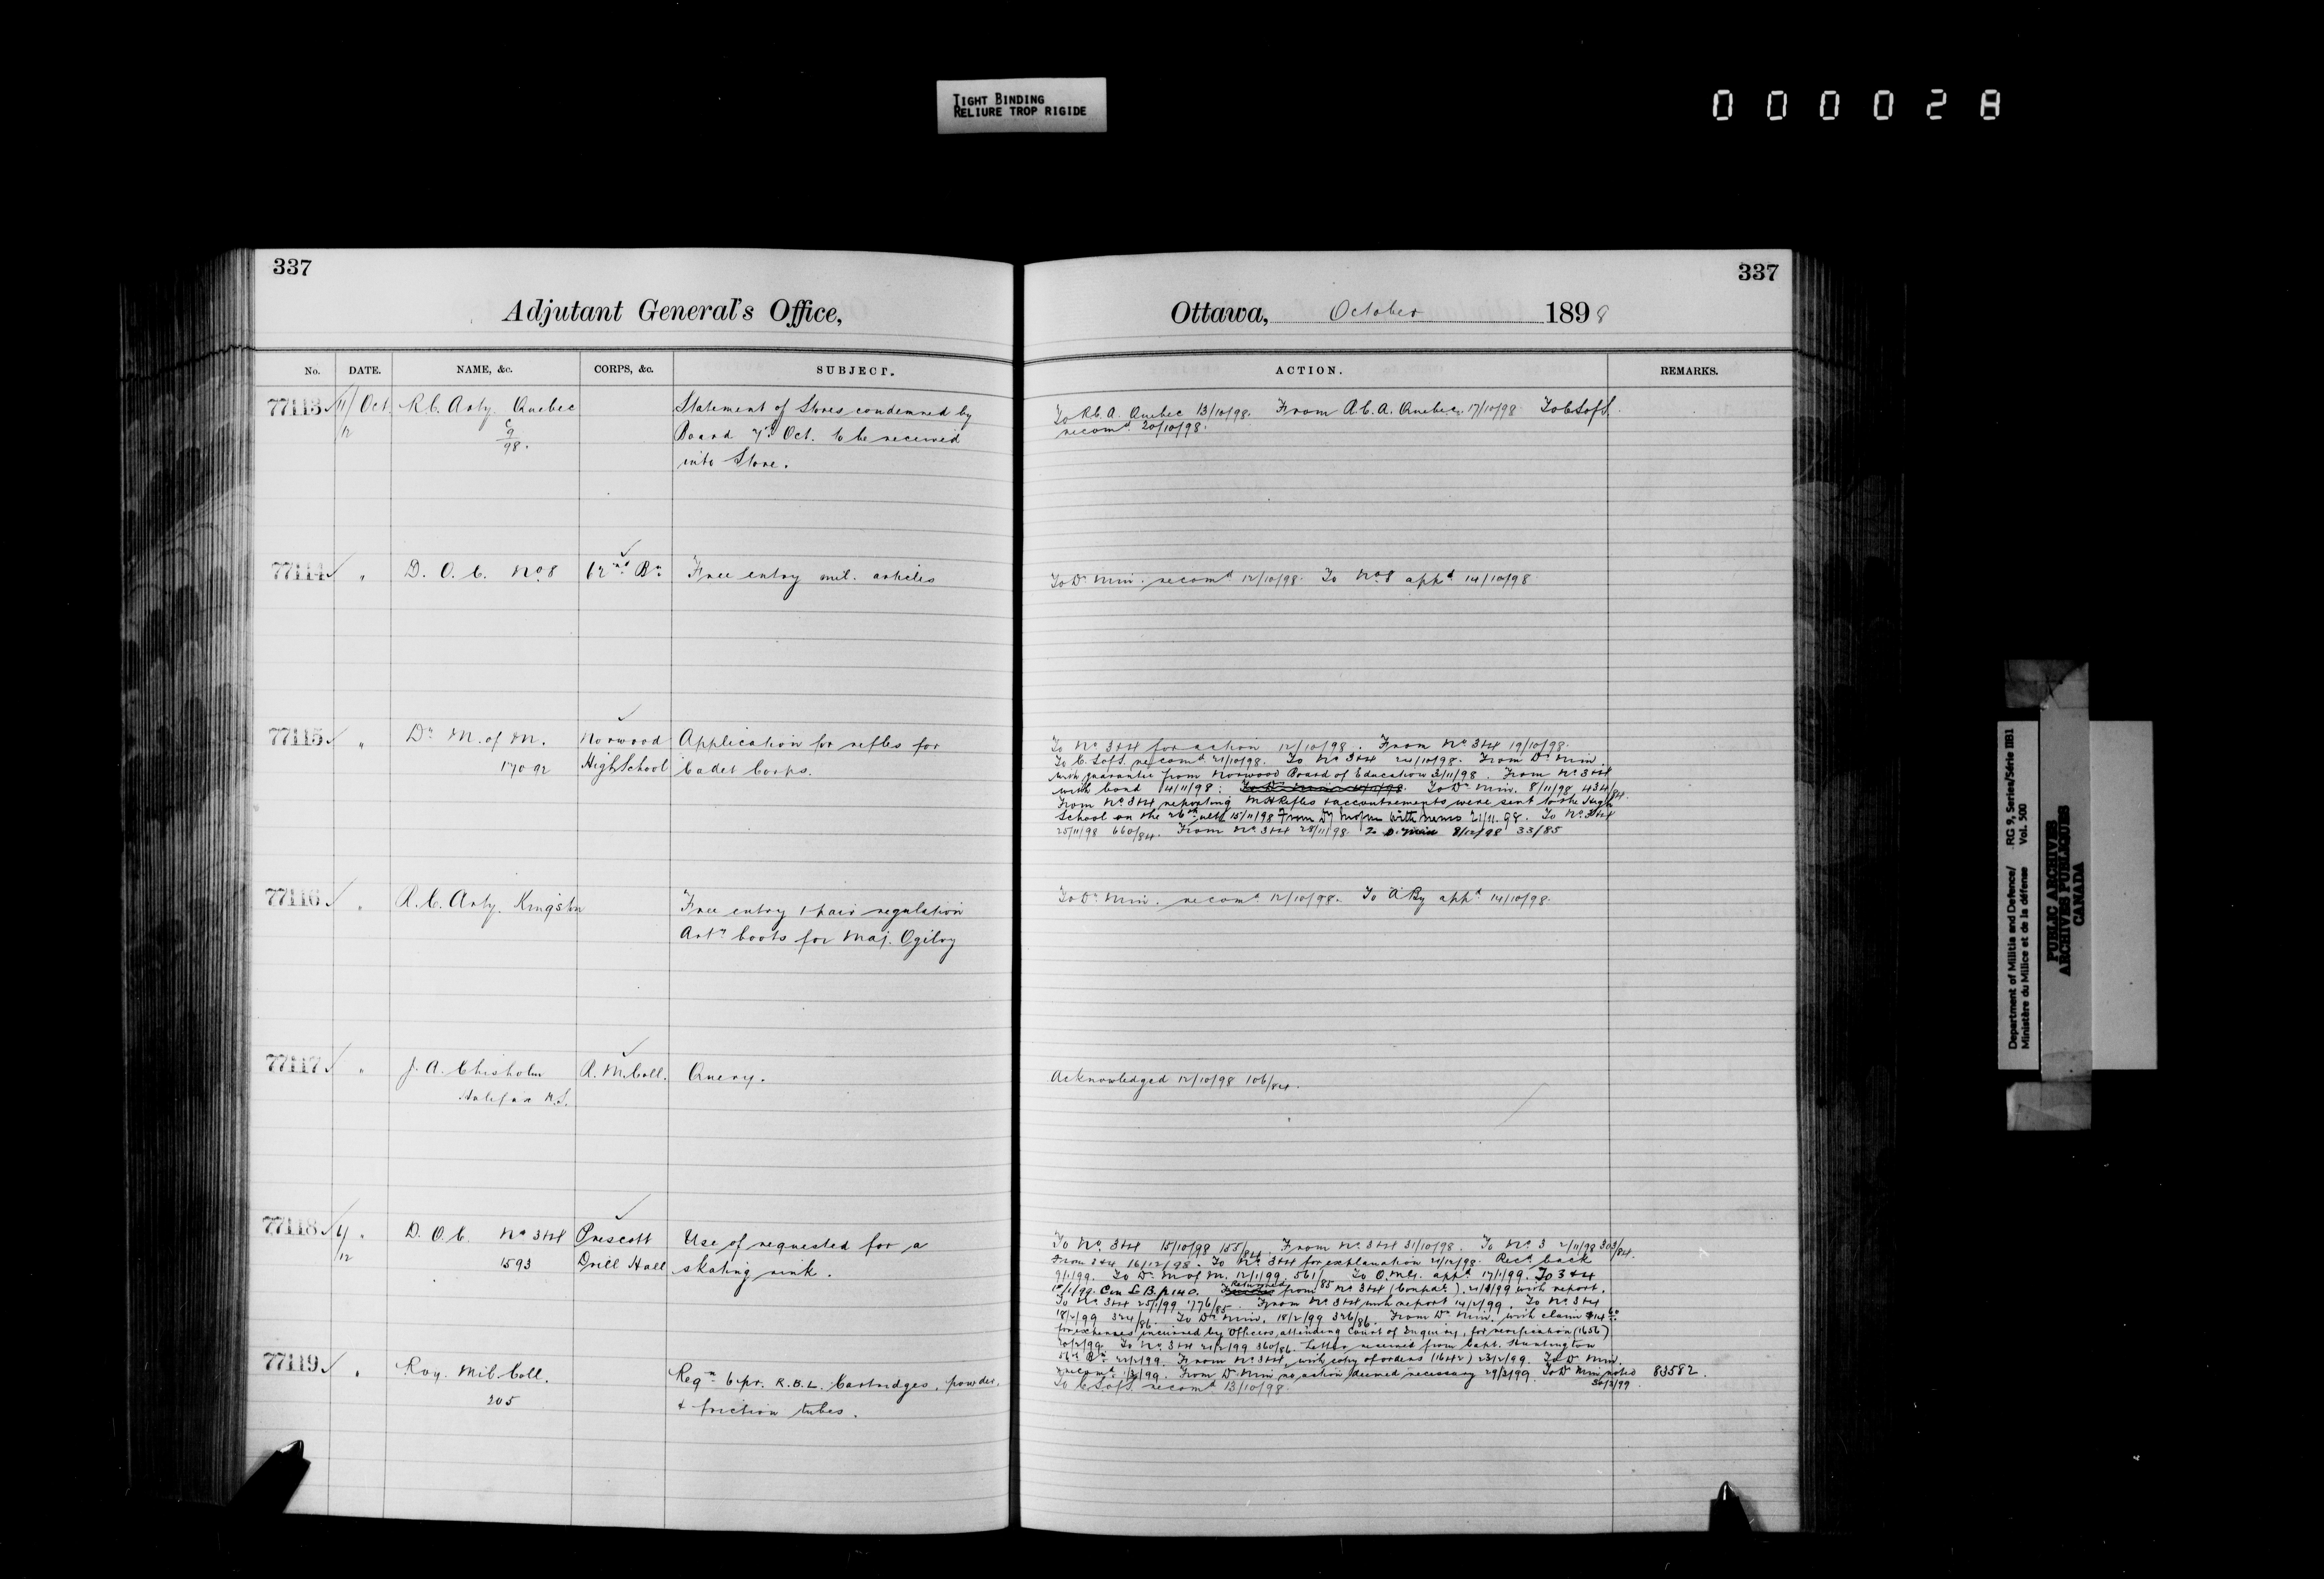 TIGHT BINDING
RELIURE TROP RIGIDE
000028
337
Adjutant General's Office,
No. DATE. NAME, &c. CORPS, &c. SUBJECT.
77113 11/12 Oct. R.C. Arty. Quebec Statement of Stores condemned by
C 9/98. Board 7th Oct. to be received
into Store.
77114 " D.O.C. No. 8 62nd Bn. Free entry mil. articles
77115 " Dr. M. of M. Norwood Application for rifles for
17092 High School Cadet Corps.
77116 " R.C. Arty. Kingston Free entry 1 pair regulation
Arty boots for Maj. Ogilvy
77117 " J.A. Chisholm R.M. Coll. Query.
Halifax N.S.
77118 4/12 " D.O.C. No 3&4 Prescott Use of requested for a
1593 Drill Hall skating rink.
77119 " Roy. Mil Coll. Reqn. 6 pr. R.B.L. Cartridges, powder,
205 & friction tubes.
337
Ottawa, October 1898
ACTION. REMARKS.
To R.C.A. Quebec 13/10/98. From R.C.A. Quebec 17/10/98 To C of S.
recomd. 20/10/98.
To Dr. Min. recomd 12/10/98. To No. 8 appd. 14/10/98.
To No. 3&4 for action 12/10/98. From No. 3&4 19/10/98.
To C. of S. recomd 21/10/98. To No 3&4 24/10/98. From Dr. Min.
with guarantee from Norwood Board of Education 3/11/98. From No. 3&4
with bond 14/11/98: To Dr. Min. 8/11/98 434/84.
From No. 3&4 reporting rifles & accoutrements were sent to the High
School on the 26th ult 15/11/98 From with memo 21/11.98. To No. 3&4
25/11/98 660/84. From No. 3&4 28/11/98 To D. Min 8/12/98 33/85
To Dr. Min. recomd 12/10/98. To "A" By appd 14/10/98.
Acknowledged 12/10/98 106/84.
To No. 3&4 15/10/98 155/84. From No. 3&4 31/10/98. To No. 3 2/11/98 303/84.
From 3&4 16/12/98. To No. 3&4 for explanation 21/12/98. Recd back
9/1/99. To Dr. M of M. 12/1/99. 561/85 To Q.M.G. appd. 17/1/99. To 3&4
18/1/99. L B. p. 140. Returned from No 3&4 with report.
To No. 3&4 25/1/99 776/85. From No. 3&4 with report 14/2/99. To No. 3&4
18/2/99 324/86. To Dr. Min. 18/2/99 326/86. From Dr. Min. with claim $14 60
for expenses incurred by Officers, attending Court of Inquiry, for verification (1656)
20/2/99. To No. 3&4 21/2/99 360/86. Letter received from Capt. Huntington
56th Bn. 22/2/99. From No. 3&4, with copy of orders (1642) 23/2/99. To Dr. Min.
recomd 1/3/99. From Dr. Min no action deemed necessary 29/3/99. To Dr Min noted 83582.
30/3/99.
To C. of S. recomd 13/10/98.
Department of Militia and Defence/ RG 9, Series/Série IIB1
Ministère du Milice et de la défense Vol. 500
PUBLIC ARCHIVES
ARCHIVES PUBLIQUES
CANADA